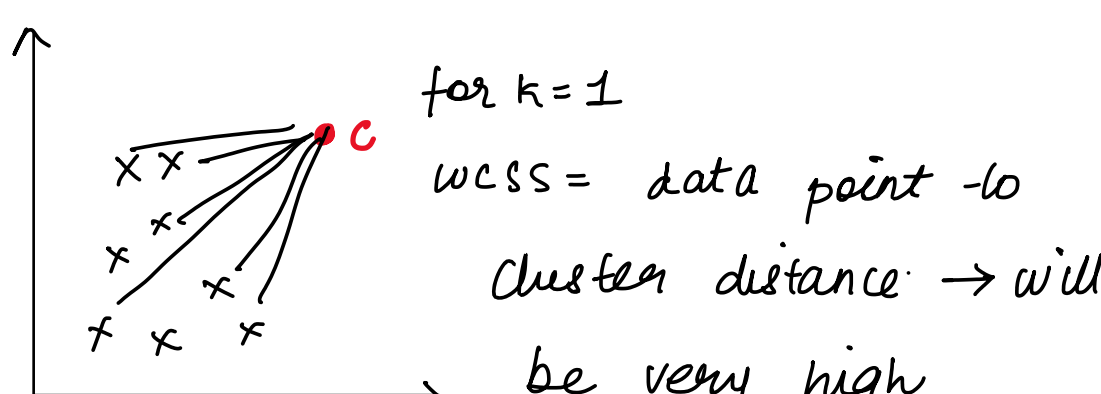 for k = 1
C
wcss = data point to
cluster distance → will
be very high